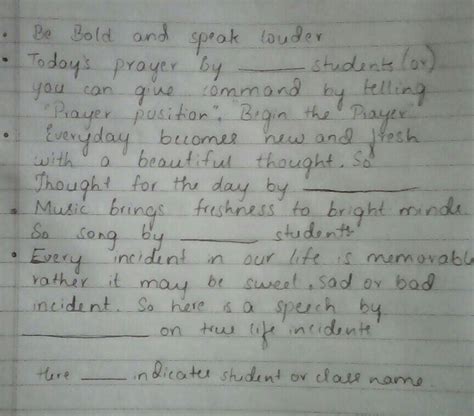 • Be Bold and speak louder
• Today's prayer by _____ students (or)
you can give command by telling
"Prayer position". Begin the Prayer"
• Everyday becomes new and fresh
with a beautiful thought. So
Thought for the day by _____
• Music brings freshness to bright minds
So song by _____ students
• Every incident in our life is memorable
rather it may be sweet, sad or bad
incident. So here is a speech by
_____ on true life incidents
Here _____ indicates student or class name.